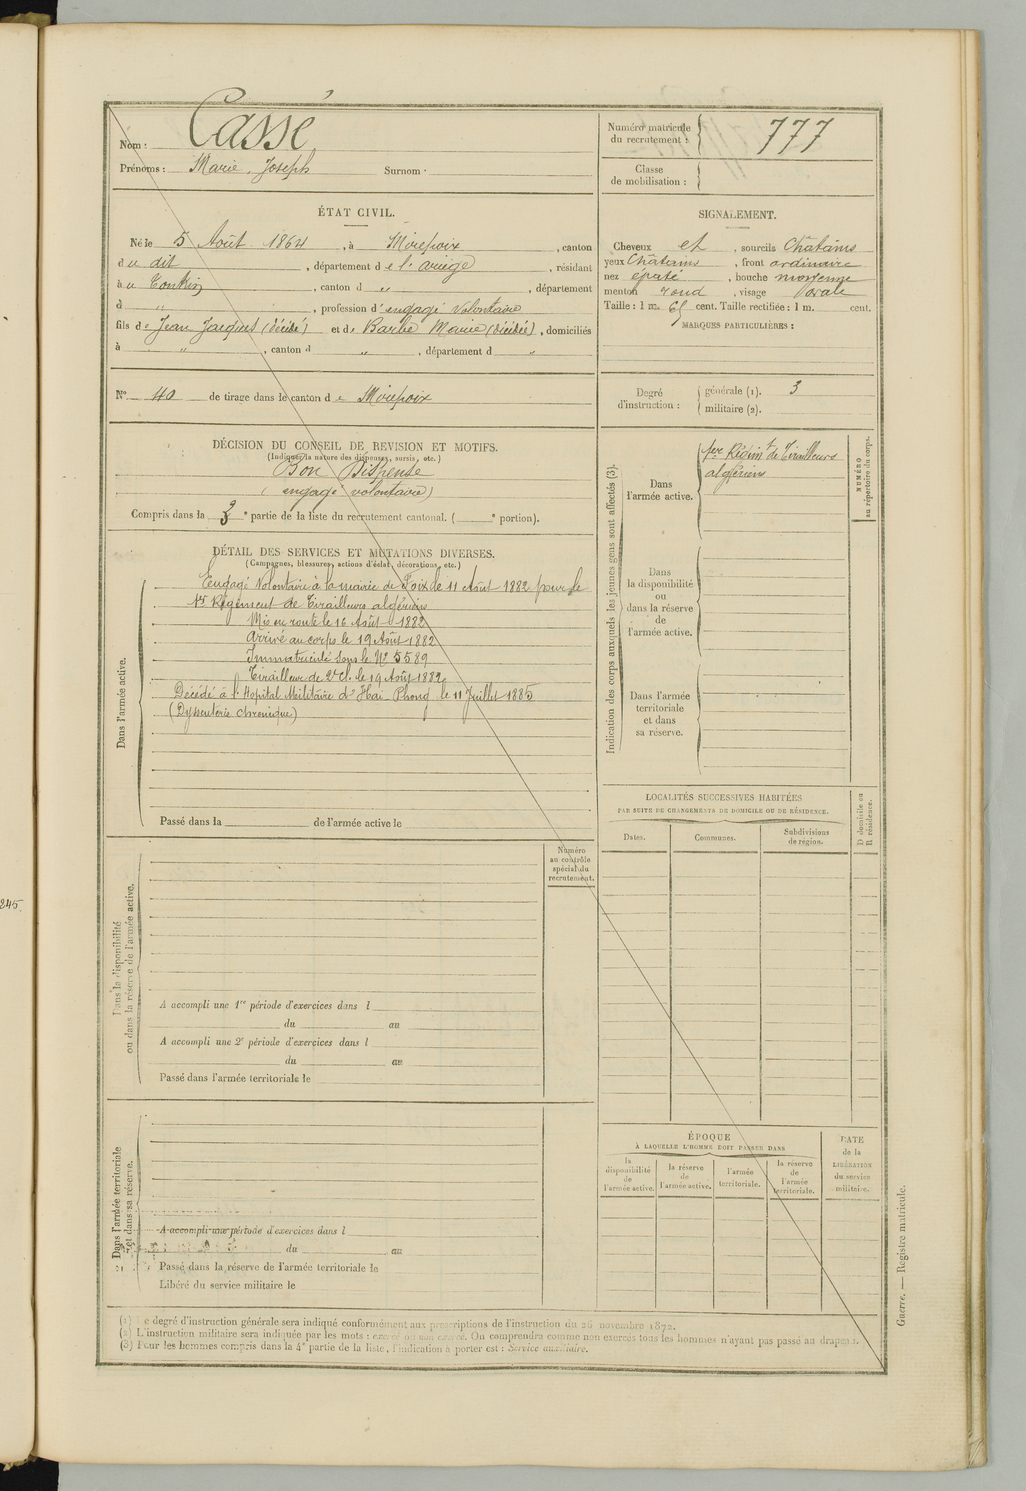 Nom : Cassé
Prénoms : Marie, Joseph Surnom ·
ÉTAT CIVIL.
Né le 5 Août 1864, à Mirepoix, canton
du dit, département de l'Ariège, résidant
à u Tonkin, canton d „, département
d „, profession d'engagé volontaire
fils de Jean Jacques (décédé) et de Barbe Marie (décédée), domiciliés
à „, canton d „, département d „
N° 40 de tirage dans le canton de Mirepoix
DÉCISION DU CONSEIL DE REVISION ET MOTIFS.
(Indiquer la nature des dispenses, sursis, etc.)
Bon Dispensé
(engagé volontaire)
Compris dans la e partie de la liste du recrutement cantonal. ( e portion).
DÉTAIL DES SERVICES ET MUTATIONS DIVERSES.
(Campagnes, blessures, actions d'éclat, décorations, etc.)
Dans l'armée active.
Engagé Volontaire à la mairie de Foix le 11 Août 1882 pour le
1er Régiment de Tirailleurs algériens
Mis en route le 16 Août 1882
Arrivé au corps le 19 Août 1882
Immatriculé sous le N° 5589
Tirailleur de 2e Cl. le 19 Août 1882
Décédé à l'Hopital Militaire d' Haï Phong le 11 Juillet 1885
(Dyssenterie chronique)
Passé dans la de l'armée active le
Dans la disponibilité
ou dans la réserve de l'armée active.
Numéro
au contrôle
spécial du
recrutement.
A accompli une 1re période d'exercices dans l
du au
A accompli une 2e période d'exercices dans l
du au
Passé dans l'armée territoriale le
Dans l'armée territoriale
et dans sa réserve.
A accompli une période d'exercices dans l
du au
Passé dans la réserve de l'armée territoriale le
Libéré du service militaire le
Numéro matricule
du recrutement : 777
Classe
de mobilisation :
SIGNALEMENT.
Cheveux et, sourcils Châtains
yeux Châtains, front ordinaire
nez épaté, bouche moyenne
menton rond, visage ovale
Taille : 1 m. 65 cent. Taille rectifiée : 1 m. cent.
MARQUES PARTICULIÈRES :
Degré
d'instruction :
générale (1). 3
militaire (2).
Indication des corps auxquels les jeunes gens sont affectés (3).
NUMÉRO
au répertoire du corps.
Dans
l'armée active.
1er Régimt de Tirailleurs
algériens
Dans
la disponibilité
ou
dans la réserve
de
l'armée active.
Dans l'armée
territoriale
et dans
sa réserve.
LOCALITÉS SUCCESSIVES HABITÉES
PAR SUITE DE CHANGEMENTS DE DOMICILE OU DE RÉSIDENCE.
D domicile ou
R résidence.
Dates. Communes. Subdivisions
de région.
ÉPOQUE
À LAQUELLE L'HOMME DOIT PASSER DANS
la
disponibilité
de
l'armée active.
la réserve
de
l'armée active.
l'armée
territoriale.
la réserve
de
l'armée
territoriale.
DATE
de la
LIBÉRATION
du service
militaire.
(1) Le degré d'instruction générale sera indiqué conformément aux prescriptions de l'instruction du 26 novembre 1872.
(2) L'instruction militaire sera indiquée par les mots : exercé ou non exercé. On comprendra comme non exercés tous les hommes n'ayant pas passé au drapeau.
(3) Pour les hommes compris dans la 4e partie de la liste, l'indication à porter est : Service auxiliaire.
Guerre. — Registre matricule.
245